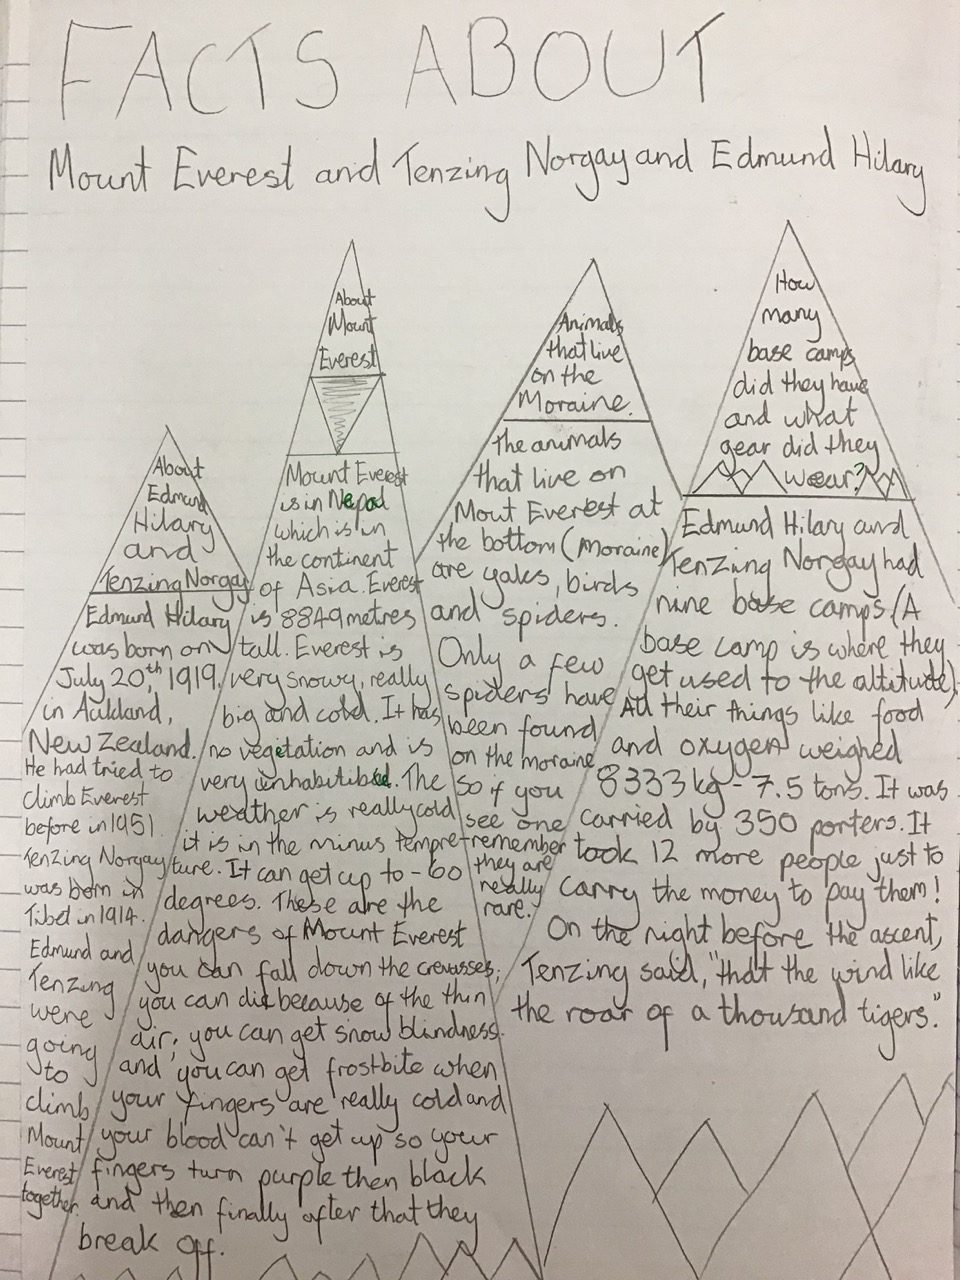 FACTS ABOUT
Mount Everest and Tenzing Norgay and Edmund Hilary
About
Edmund
Hilary
and
Tenzing Norgay
Edmund Hilary
was born on
July 20th, 1919,
in Aukland,
New Zealand.
He had tried to
climb Everest
before in 1951.
Tenzing Norgay
was born in
Tibet in 1914.
Edmund and
Tenzing
were
going
to
climb
Mount
Everest
together.
About
Mount
Everest
Mount Everest
is in Nepal
which is in
the continent
of Asia. Everest
is 8849 metres
tall. Everest is
very snowy, really
big and cold. It has
no vegetation and is
very
The
weather is really cold
it is in the minus tempre-
ture. It can get up to -60
degrees. These are the
dangers of Mount Everest
you can fall down the crevasses;
you can die because of the thin
air; you can get snow blindness.
and you can get frostbite when
your fingers are really cold and
your blood can't get up so your
fingers turn purple then black
and then finally after that they
break off.
Animals
that live
on the
Moraine.
The animals
that live on
Mout Everest at
the bottom (moraine)
are yaks, birds
and spiders.
Only a few
spiders have
been found
on the moraine
so if you
see one
remember
they are
really
rare.
How
many
base camps
did they have
and what
gear did they
wear?
Edmund Hilary and
Tenzing Norgay had
nine base camps (A
base camp is where they
get used to the altitude)
All their things like food
and oxygen weighed
8333 kg - 7.5 tons. It was
carried by 350 porters. It
took 12 more people just to
carry the money to pay them!
On the night before the ascent,
Tenzing said, "that the wind like
the roar of a thousand tigers."